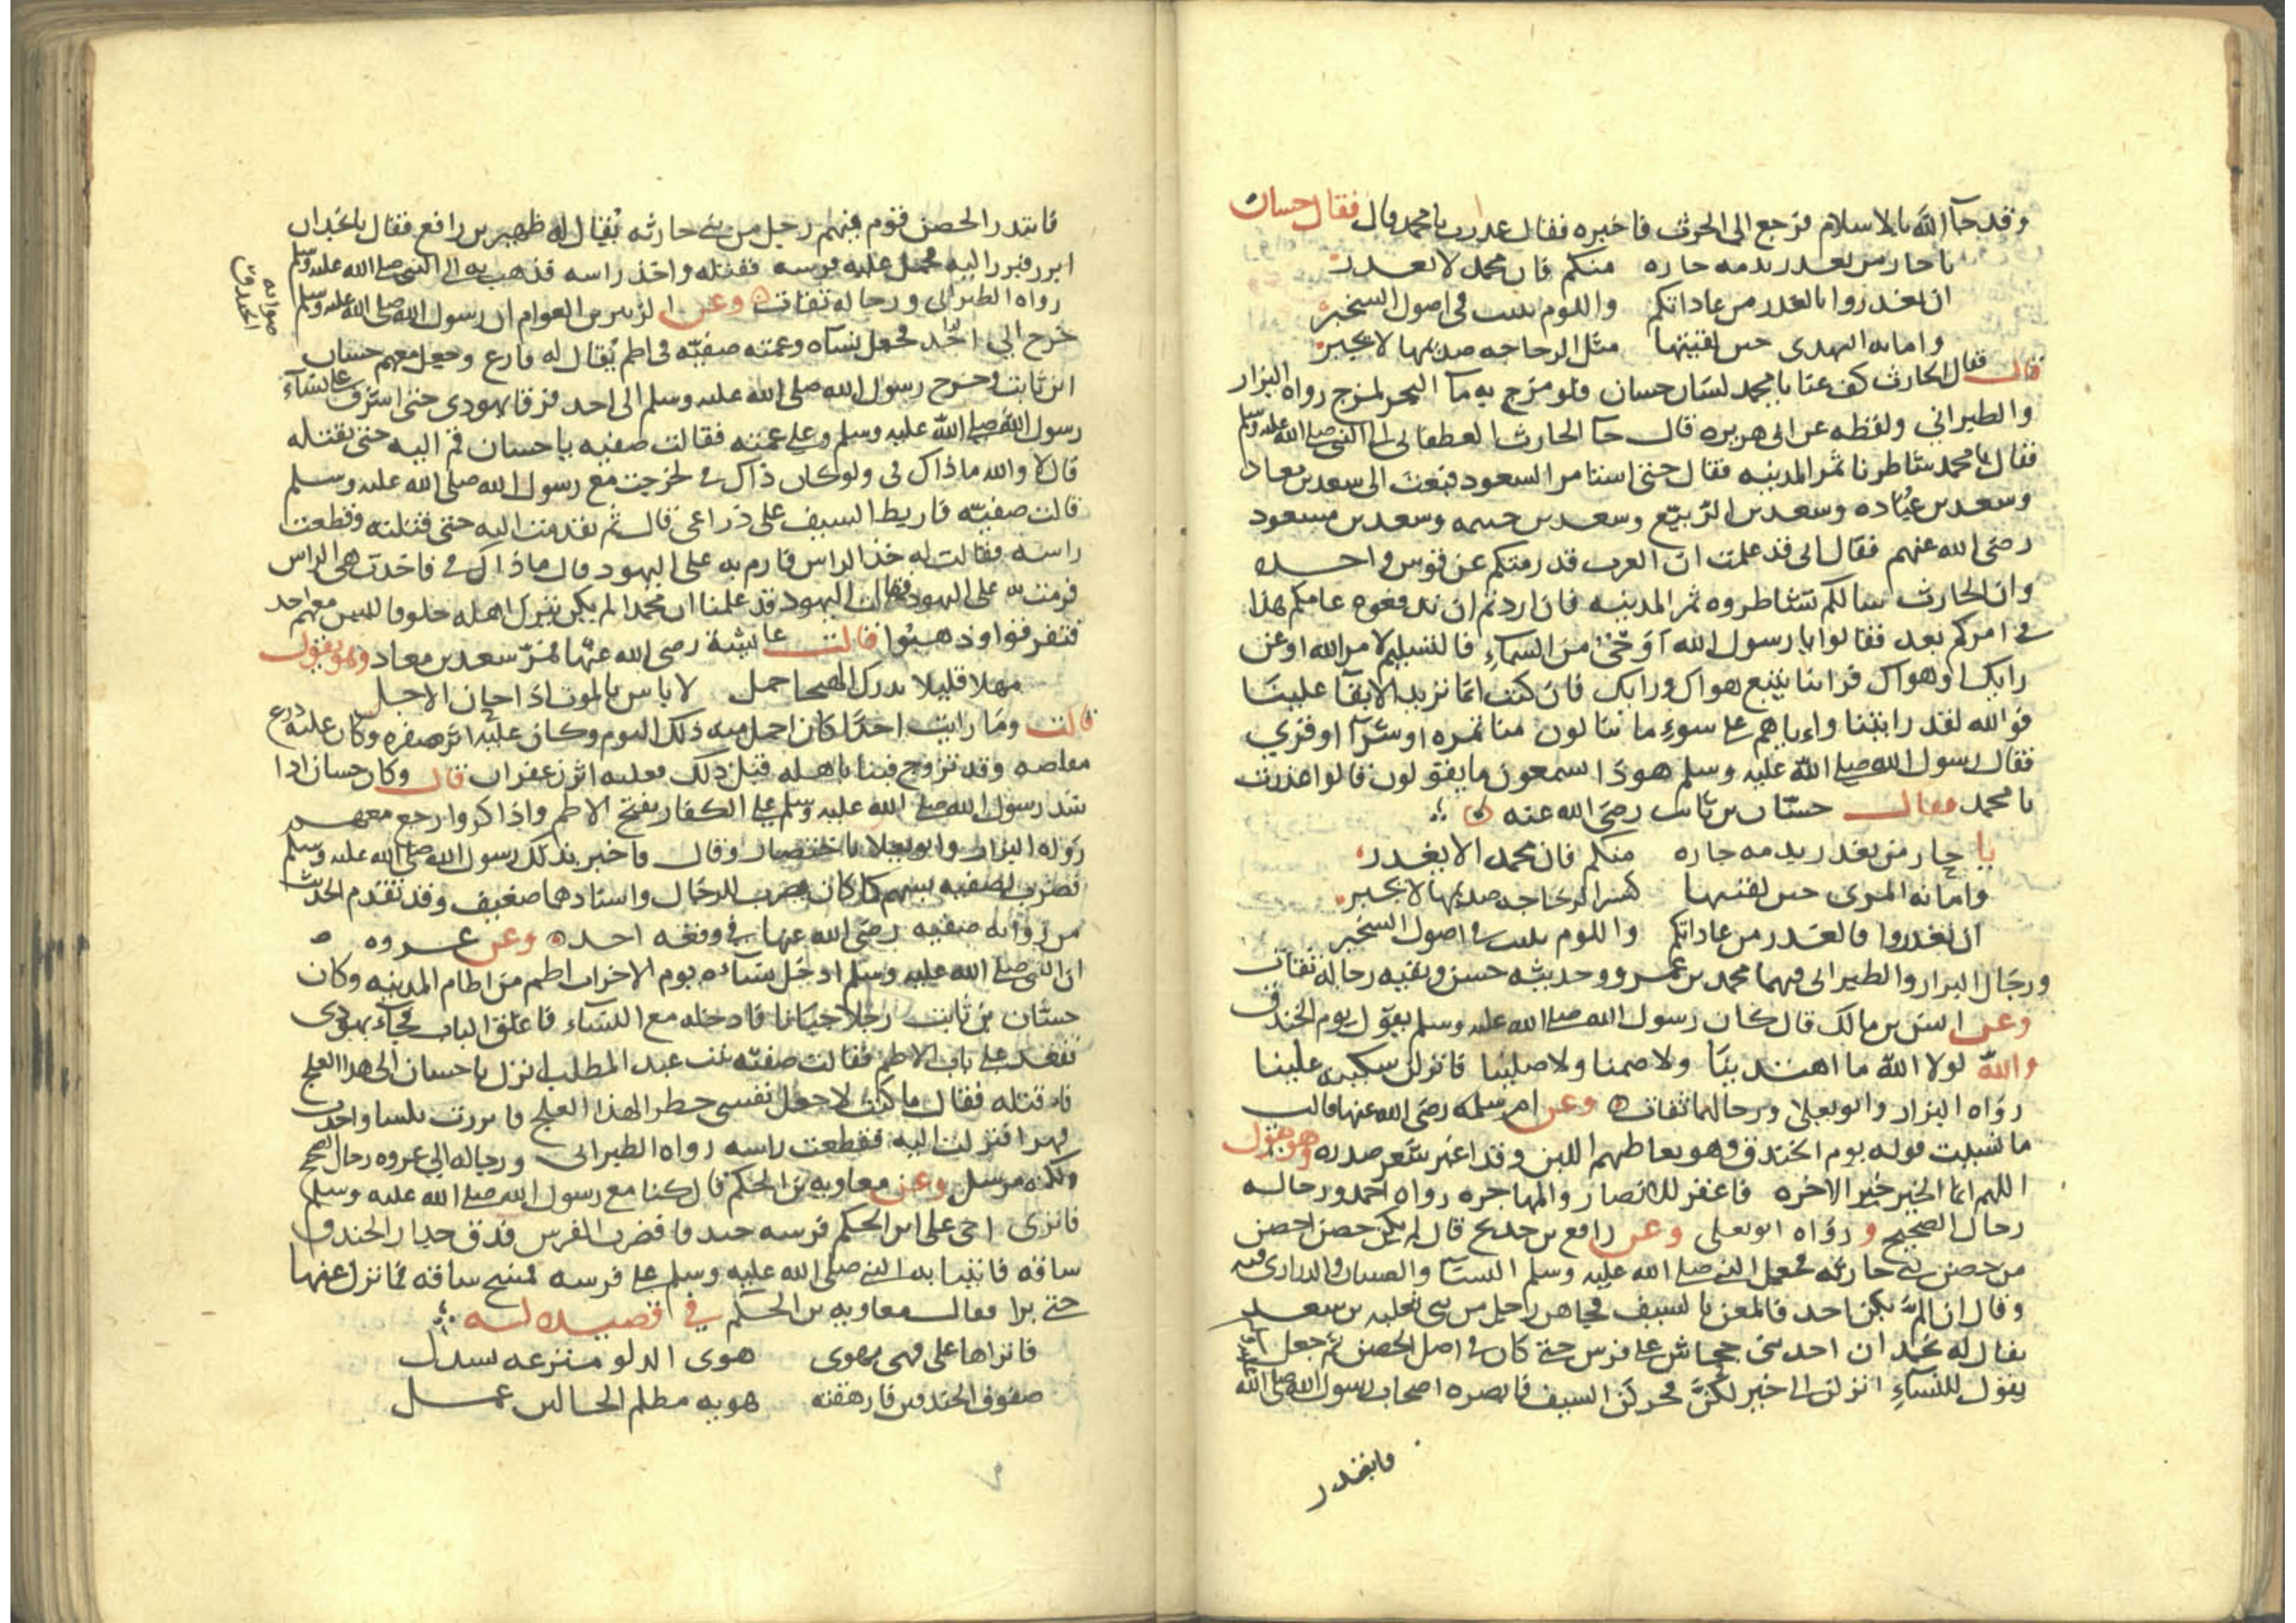 وقد جاء الله بالاسلام فرجع الى الحرث فاخبره فقال غدرت يا محمد قال فقال حسان
يا حار من يغدر بذمه جاره منكم فان محمد لا يغدر
ان تغدروا بالغدر من عاداتكم واللوم ينبت في اصول السخبر
وامانه النهدى حين لقيتها مثل الزجاجه صدعها لا يجبر
قال فقال الحارث كف عنا يا محمد لسان حسان فلو مزج به ماء البحر لمزج رواه البزار
والطبراني ولفظه عن ابي هريره قال جاء الحارث الغطفاني الى النبي صلى الله عليه وسلم
فقال يا محمد شاطرنا تمر المدينه فقال حتى استامر السعود فبعث الى سعد بن معاذ
وسعد بن عباده وسعد بن الربيع وسعد بن خيثمه وسعد بن مسعود
رضى الله عنهم فقال انى قد علمت ان العرب قد رمتكم عن قوس واحده
وان الحارث سالكم تشاطروه تمر المدينه فان اردتم ان تدفعوه عامكم هذا
في امركم بعد فقالوا يا رسول الله آوحىٌ من السماءِ فالتسليم لامر الله او عن
رايك او هواك فراينا يتبع هواك ورايك فان كنت انما تريد الابقا علينا
فوالله لقد رايتنا واياهم على سوءٍ ما ينالون منا تمره او شرآ او قري
فقال رسول الله صلى الله عليه وسلم هو ذا تسمعون ما يقولون قالوا غدرت
يا محمد فقال حسان بن ثابت رضى الله عنه
يا حار من يغدر بذمه جاره منكم فان محمد الا يغدر
وامانه المرى حين لقيتها كسر الزجاجه صدعها لا يجبر
ان تغدروا فالغدر من عاداتكم واللوم ينبت في اصول السخبر
ورجال البزار والطبرانى فيهما محمد بن عمرو وحديثه حسن وبقيه رجاله ثقات
وعن انس بن مالك قال كان رسول الله صلى الله عليه وسلم يقول يوم الخندق
والله لولا الله ما اهتدينا ولا صمنا ولا صلينا فانزلن سكينه علينا
رواه البزار وابو يعلى ورجالهما ثقات وعن ام سلمه رضى الله عنها قالت
ما نسيت قوله يوم الخندق وهو يعاطيهم اللبن وقد اغبر شعر صدره وهو يقول
اللهم ان الخير خير الاخره فاغفر للانصار والمهاجره رواه احمد ورجاله
رجال الصحيح و رواه ابو يعلى وعن رافع بن خديج قال لم يكن حصن احصن
من حصن بني حارثه فجعل النبي صلى الله عليه وسلم النساء والصبيان والذرارى فيه
وقال ان لم يكن احد فالمعن بالسيف فجاهن رجل من بني ثعلبه بن سعد
يقال له نجدان احد بنى جحاش على فرس حتى كان في اصل الحصن ثم جعل
يقول للنساءِ انزلن الى خير لكنّ فحركن السيف فابصره اصحاب رسول الله صلى الله
فابتدر
فابتدر الحصن قوم فيهم رجل من بني حارثه يُقال له ظهير بن رافع فقال يا نجدان
ابرز فبرز اليه فحمل عليه فرسه فقتله واخذ راسه فذهب به الى النبي صلى الله عليه وسلم
رواه الطبرانى ورجاله ثقات وعن الزبير بن العوام ان رسول الله صلى الله عليه وسلم
صوابه الخندق
خرج الى احد فجعل نساه وعمته صفيه فى اطم يُقال له فارع وجعل معهم حسان
ابن ثابت وخرج رسول الله صلى الله عليه وسلم الى احد فرقا يهودى حتى اشرف على نساء
رسول الله صلى الله عليه وسلم وعلى عمته فقالت صفيه يا حسان قم اليه حتى تقتله
قال لا والله ما ذاك فى ولو كان ذاك في لخرجت مع رسول الله صلى الله عليه وسلم
قالت صفيه فاربط السيف على ذراعى قال ثم تقدمت اليه حتى قتلته وقطعت
راسه فقالت له خذ الراس فارم به على اليهود قال ما ذاك في فاخذت هي الراس
فرمت به على اليهود فقالت اليهود قد علمنا ان محمدا لم يكن يترك اهله خلوفا ليس معهم احد
فتفرقوا وذهبوا قالت عايشة رضى الله عنها فمرّ سعد بن معاذ وهو يقول
مهلا قليلا يدرك الهيجا حمل لا باس بالموت اذا حان الاجل
قالت وما رايت احدًا كان اجمل منه ذلك اليوم وكان عليه اثر صفره وكان عليه درع
مقلصه وقد تزوج فبنا باهله قبل ذلك فعليه اثر زعفران قال وكان حسان اذا
شد رسول الله صلى الله عليه وسلم على الكفار يفتح الاطم واذا كروا رجع معهم
رواه البزار وابو يعلا باختصار وقال فاخبر بذلك رسول الله صلى الله عليه وسلم
فضرب لصفيه بسهم كما كان يضرب للرجال واسنادهما ضعيف وقد تقدم الحديث
من روايه صفيه رضى الله عنها في وقعه احد وعن عروه
ان النبى صلى الله عليه وسلم ادخل نساءه يوم الاحزاب اطم من اطام المدينه وكان
حسّان بن ثابت رجلا جبانا فادخله مع النساء فاغلق الباب فجاء يهودى
فقعد على باب الاطم فقالت صفيه بنت عبد المطلب انزل يا حسان الى هذا العلج
فاقتله فقال ما كنت لاجعل نفسى خطرا لهذا العلج فاتزرت بكسا واخذت
فهرا فنزلت اليه فقطعت راسه رواه الطبرانى ورجاله الى عروه رجال الصحيح
ولكنه مرسل وعن معاويه بن الحكم قال كنا مع رسول الله صلى الله عليه وسلم
فانزى اخى على ابن الحكم فرسه خندقا فضرب الفرس فدق جدار الخندق
ساقه فاتينا به النبي صلى الله عليه وسلم على فرسه فمسح ساقه فما نزل عنها
حتى برا فقال معاويه بن الحكم في قصيده له
فانزاها على فهى تهوى هوى الدلو منزعه بسدل
صفوف الخندقين فارهقته هويه مظلم الحالين عمل